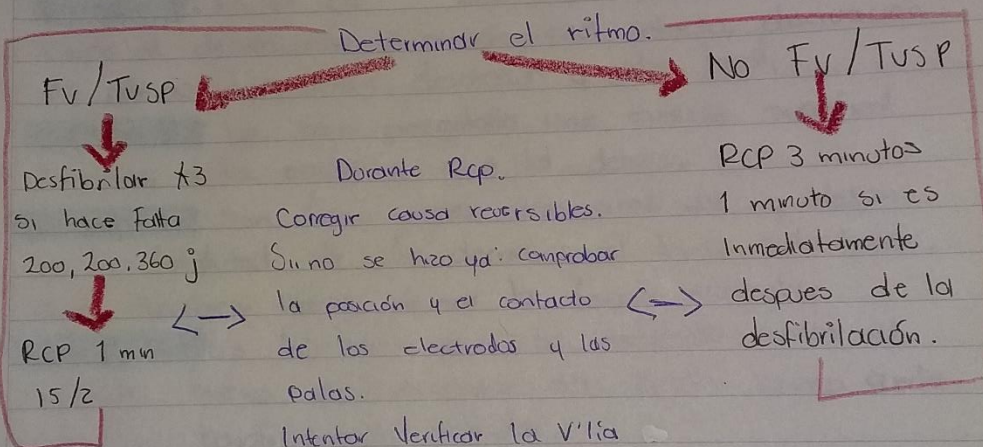 Determinar el ritmo.
Fv/Tvsp
No Fv/Tvsp
Desfibrilar x3
si hace falta
200, 200, 360 j
RCP 1 min
15/2
Durante Rcp.
Corregir causa reversibles.
Si no se hizo ya: comprobar
<-> la posición y el contacto <->
de los electrodos y las
palas.
Intentar Verificar la
RCP 3 minutos
1 minuto si es
Inmediatamente
despues de la
desfibrilación.